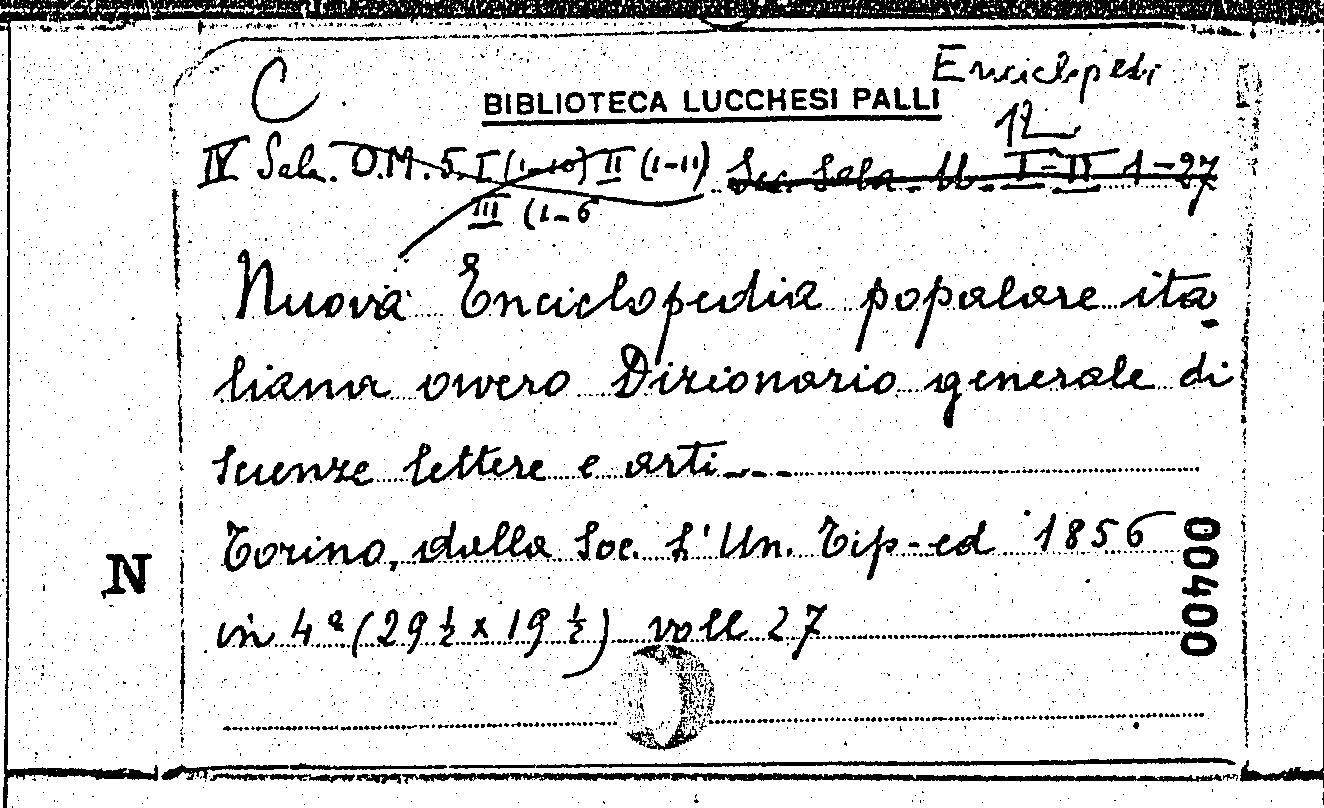 C.
Enciclopedi
BIBLIOTECA LUCCHESI PALLI
12
IV Sala. O.M. 5. I (1-10) II (1-11) Sec. Sala. Ub. I-II 1-27
III (1-6
Nuova Enciclopedia popolare ita-
liana ovvero Dizionario generale di
scienze lettere e arti---
Torino, dalla Soc. L'Un. Tip-ed 1856
in 4° (29 ½ x 19 ½) voll 27
N
00400